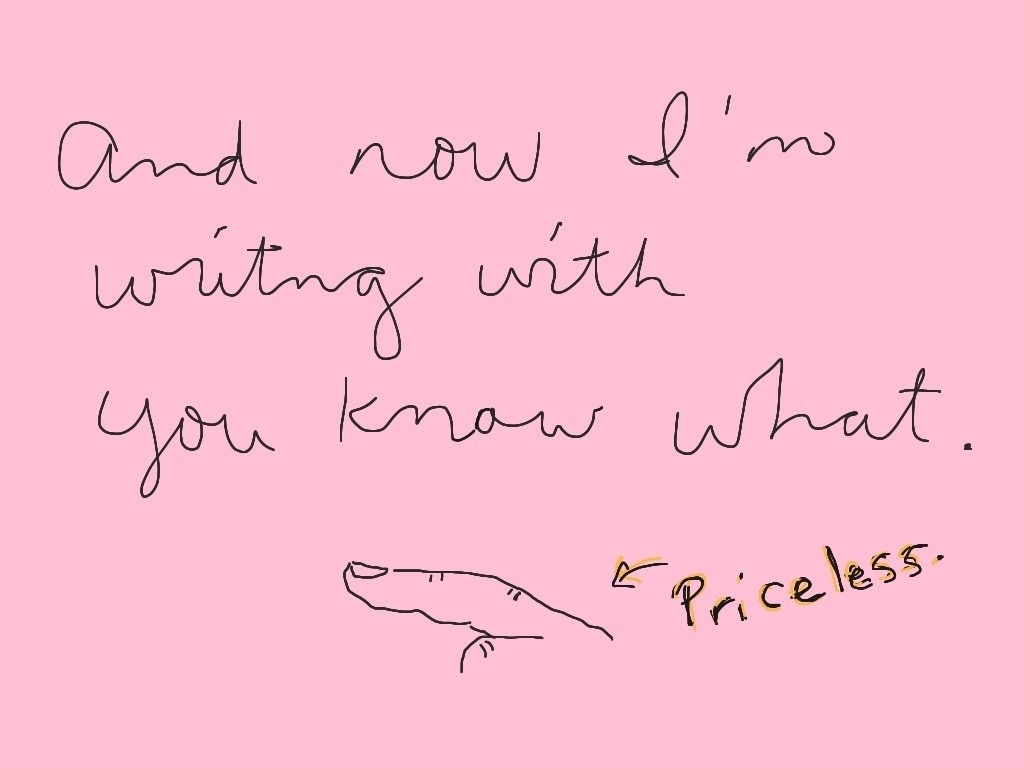 And now I'm
writng with
you know what.
Priceless.